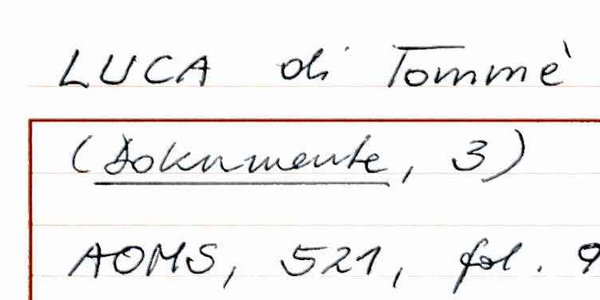 LUCA di Tommè
(Dokumente, 3)
AOMS, 521, fol. 9